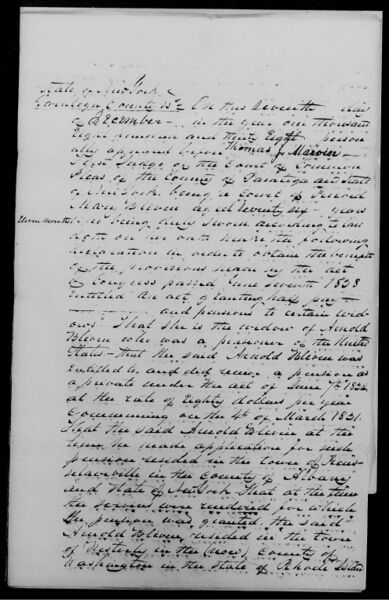 State of New York
Saratoga County ss. On this Seventh day
of December in the year one thousand
Eight hundred and thirty Eight person
ally appeared before Thomas J. Marvin
first Judge of the Court of Common
Pleas of the County of Saratoga
of New York being a Court of Record
Mary Bliven aged Seventy six years
Eleven months & being duly sworn according to law
doth on her oath make the following
declaration in order to obtain the benefit
of the provisions made by the act
of Congress passed June seventh 1838
entitled an act granting half pay
and pensions to certain wid
ows. That she is the widow of Arnold
Bliven who was a pensioner of the United
States - that the said Arnold Bliven was
entitled to and did receive a pension as
a private under the act of June 7th 1832
at the rate of Eighty dollars per year
Commencing on the 4th of March 1831.
That the said Arnold Bliven at the
time he made application for such
pension resided in the town of Rens
selaerville in the County of Albany
and State of New York That at the time
the services were rendered for which
the pension was granted the said
Arnold Bliven resided in the town
of Westerly in the (now) County of
Washington in the State of Rhode Island